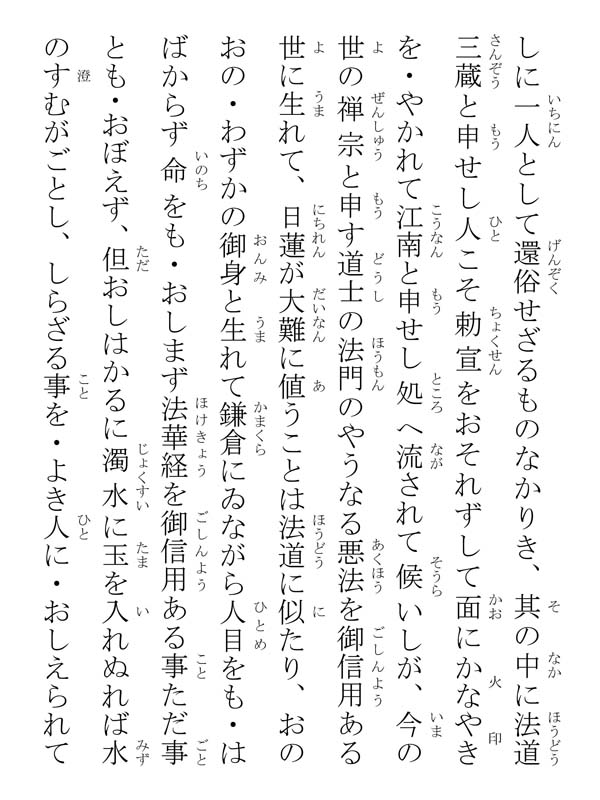 しに一人として還俗せざるものなかりき、其の中に法道
三蔵と申せし人こそ勅宣をおそれずして面にかなやき
を・やかれて江南と申せし処へ流されて候いしが、今の
世の禅宗と申す道士の法門のやうなる悪法を御信用ある
世に生れて、日蓮が大難に値うことは法道に似たり、おの
おの・わずかの御身と生れて鎌倉にゐながら人目をも・は
ばからず命をも・おしまず法華経を御信用ある事ただ事
とも・おぼえず、但おしはかるに濁水に玉を入れぬれば水
のすむがごとし、しらざる事を・よき人に・おしえられて